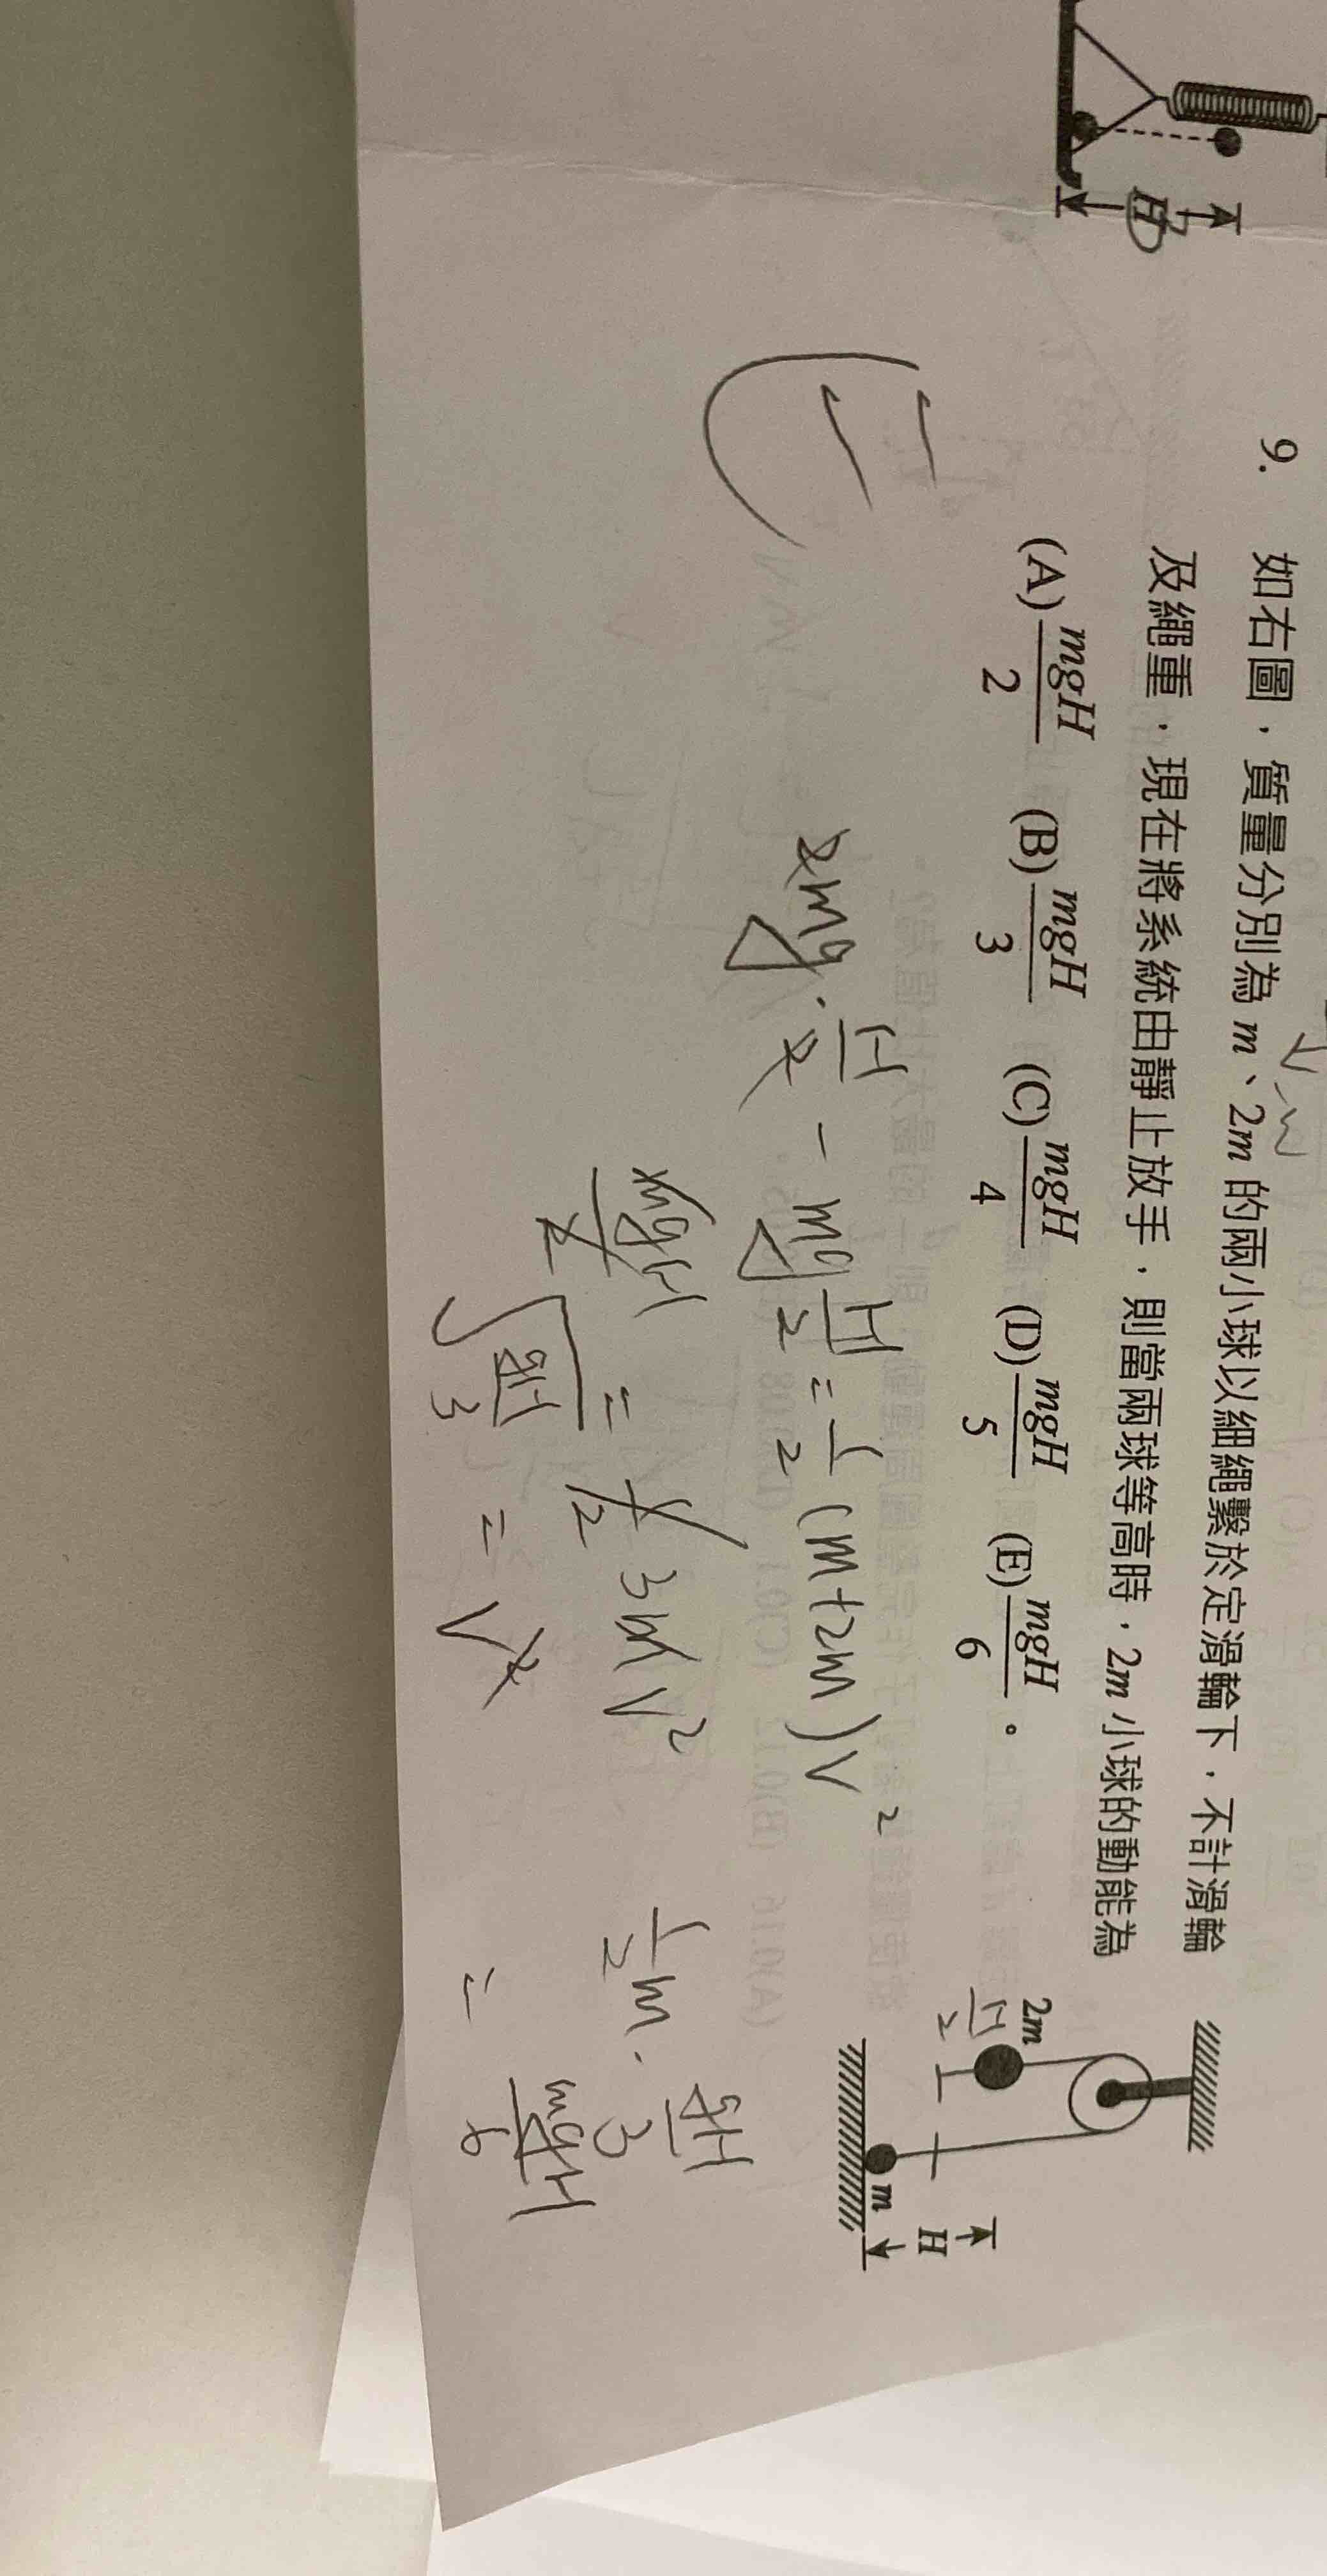 H
B
9. 如右圖，質量分別為 m、2m 的兩小球以細繩繫於定滑輪下，不計滑輪
及繩重，現在將系統由靜止放手，則當兩球等高時，2m 小球的動能為
(A) mgH/2 (B) mgH/3 (C) mgH/4 (D) mgH/5 (E) mgH/6 。
2m
H/2
m
H
E
2mg · H/2 - mg H/2 = 1/2 (m+2m) v²
mgH/2 = 1/2 3m v²
√(gH/3) = v
1/2 m · gH/3
= mgH/6